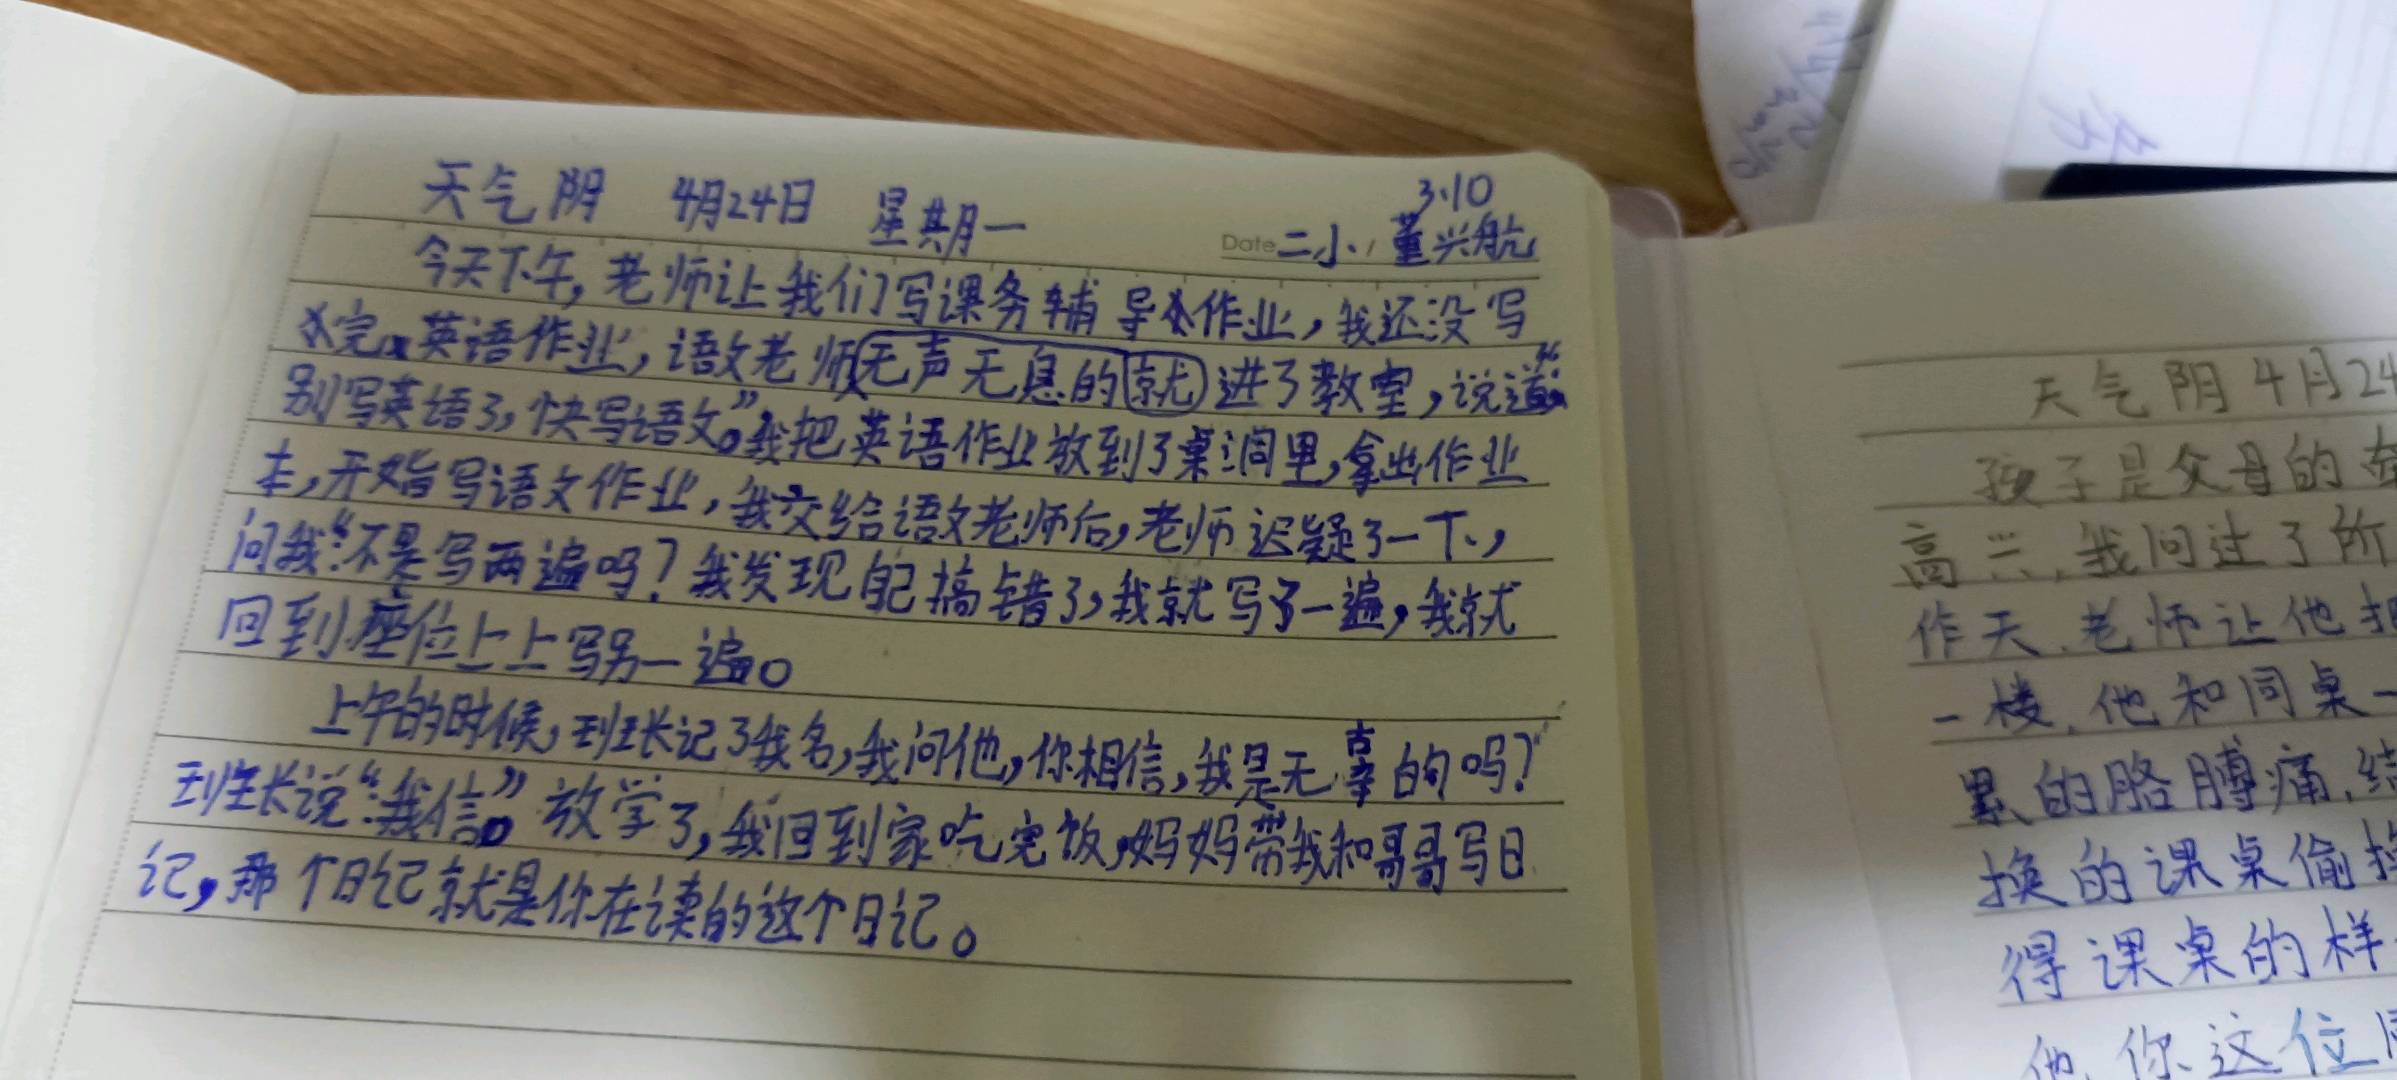 天气阴 4月24日 星期一
3.10
Date 二小 董兴航
今天下午,老师让我们写课务辅导作业,我还没写
完英语作业,语文老师无声无息的就进了教室,说道:“
别写英语了,快写语文。”我把英语作业放到了桌洞里,拿出作业
本,开始写语文作业,我交给语文老师后,老师迟疑了一下,
问我:“不是写两遍吗?我发现自己搞错了,我就写了一遍,我就
回到座位上上写另一遍。
上午的时候,班长记了我名,我问他,你相信,我是无辜的吗?”
班长说:“我信。”放学了,我回到家吃完饭,妈妈带我和哥哥写日
记,那个日记就是你在读的这个日记。
天气阴 4月24
孩子是父母的
高兴,我问过了所
作天,老师让他
一楼,他和同桌一
累的胳膊痛,结
换的课桌偷
得课桌的样
他,你这位同